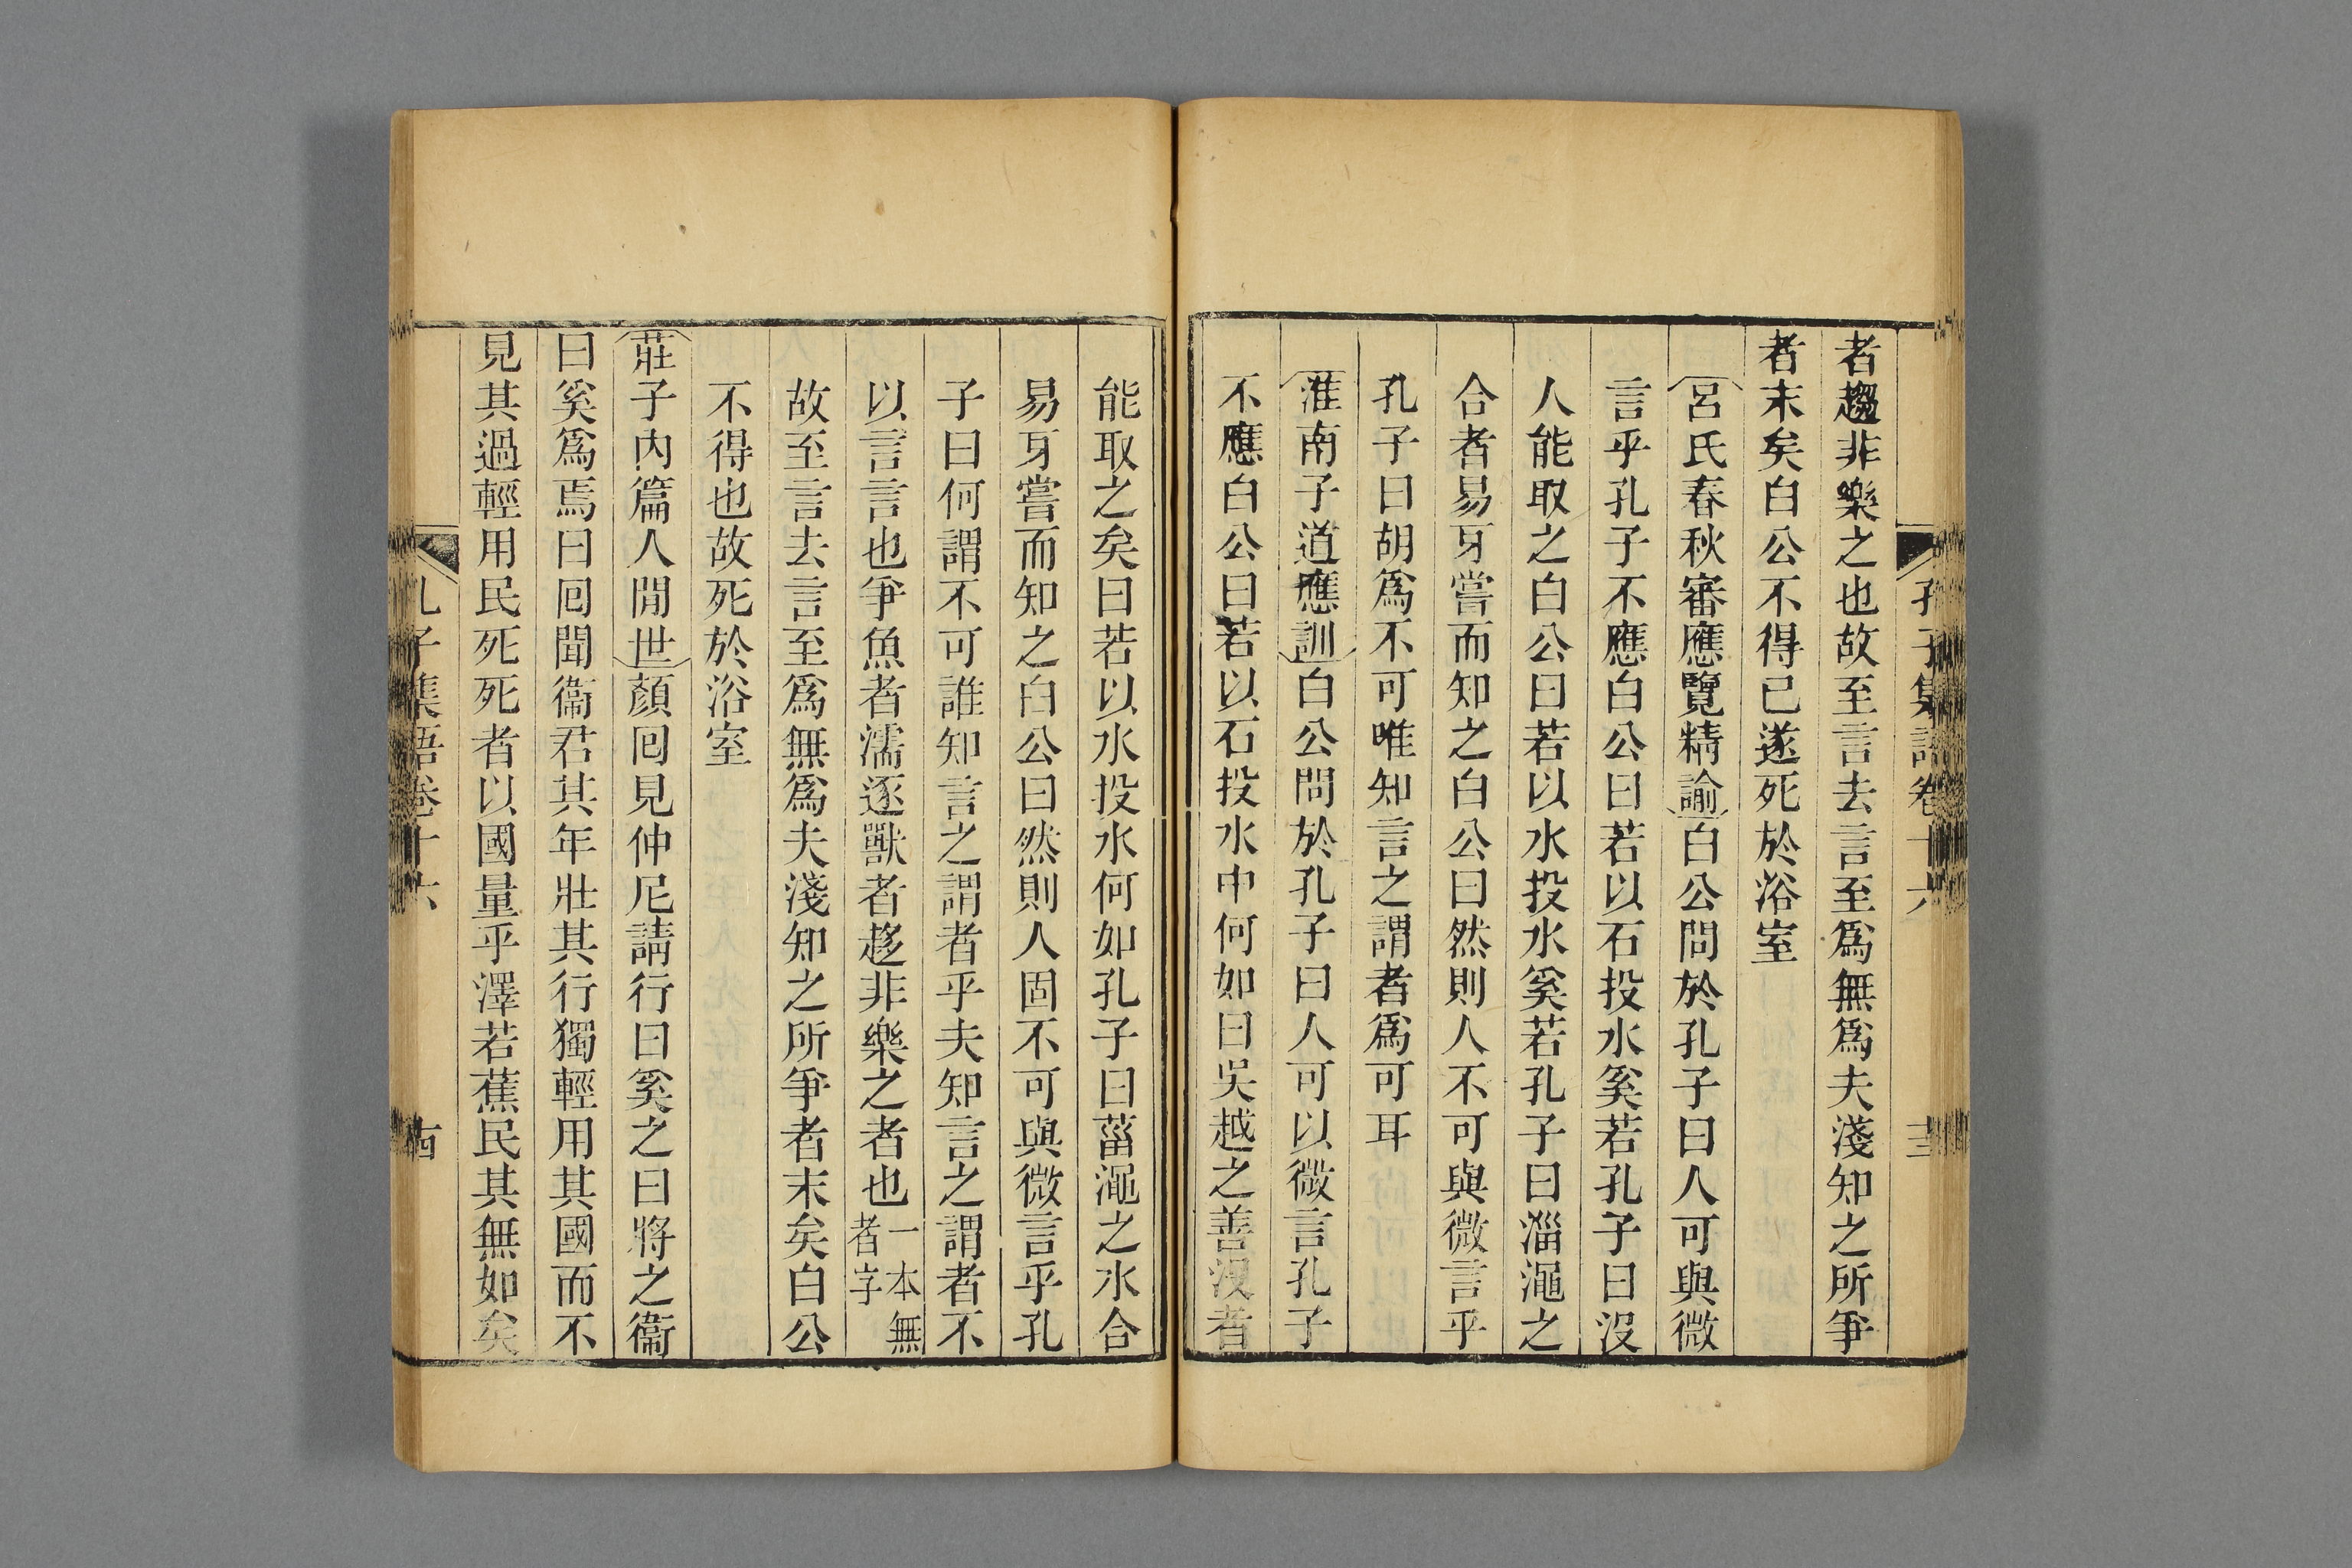 孔子集語卷十六 十三
者趨非樂之也故至言去言至爲無爲夫淺知之所爭
者末矣白公不得已遂死於浴室
呂氏春秋審應覽精諭白公問於孔子曰人可與微
言乎孔子不應白公曰若以石投水奚若孔子曰没
人能取之白公曰若以水投水奚若孔子曰淄澠之
合者易牙嘗而知之白公曰然則人不可與微言乎
孔子曰胡爲不可唯知言之謂者爲可耳
淮南子道應訓白公問於孔子曰人可以微言孔子
不應白公曰若以石投水中何如曰吳越之善没者
能取之矣曰若以水投水何如孔子曰菑澠之水合
易牙嘗而知之白公曰然則人固不可與微言乎孔
子曰何謂不可誰知言之謂者乎夫知言之謂者不
以言言也爭魚者濡逐獸者趍非樂之者也一本無者字
故至言去言至爲無爲夫淺知之所爭者末矣白公
不得也故死於浴室
莊子內篇人閒世顏囘見仲尼請行曰奚之曰將之衞
曰奚爲焉曰囘聞衞君其年壯其行獨輕用其國而不
見其過輕用民死死者以國量乎澤若蕉民其無如矣
孔子集語卷十六 十四